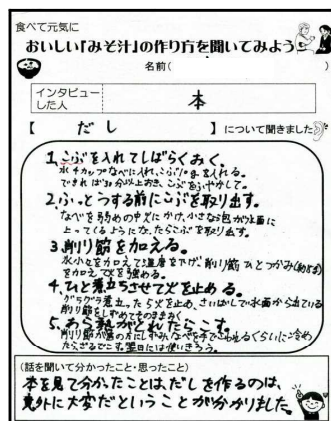 食べて元気に
おいしい「みそ汁」の作り方を聞いてみよう
名前(　　　)
インタビュー
した人
本
【 だし 】について聞きました
1. こぶを入れてしばらくおく。
水4カップなべに入れ、こぶ10gを入れる。
できれば30分以上おき、こぶをふやかして。
2. ふっとうする前にこぶを取り出す。
なべを弱めの中火にかけ、小さな泡が水面に
上ってくるようになったらこぶを取り出す。
3. 削り節を加える。
水少々を加えて温度を下げ、削り節ひとつかみ
を加えて火を強める。
4. ひと煮立ちさせて火を止める。
グラグラ煮立ったら火を止め、さいばしで水面から出ている
削り節をしずめてそのままおく
5. あら熱がとれたらこす。
削り節が底の方にしずみ、なべを手でさわれるぐらいに冷め
たらざるでこす。翌日には使いきろう。
(話を聞いて分かったこと・思ったこと)
本を見て分かったことは、だしを作るのは、
意外に大変だということが分かりました。